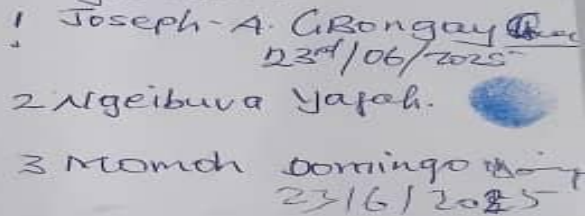 1 Joseph-A. GBongay
23rd/06/2025
2 Ngeibuva Yajah.
3 Momoh Domingo
23/6/2025